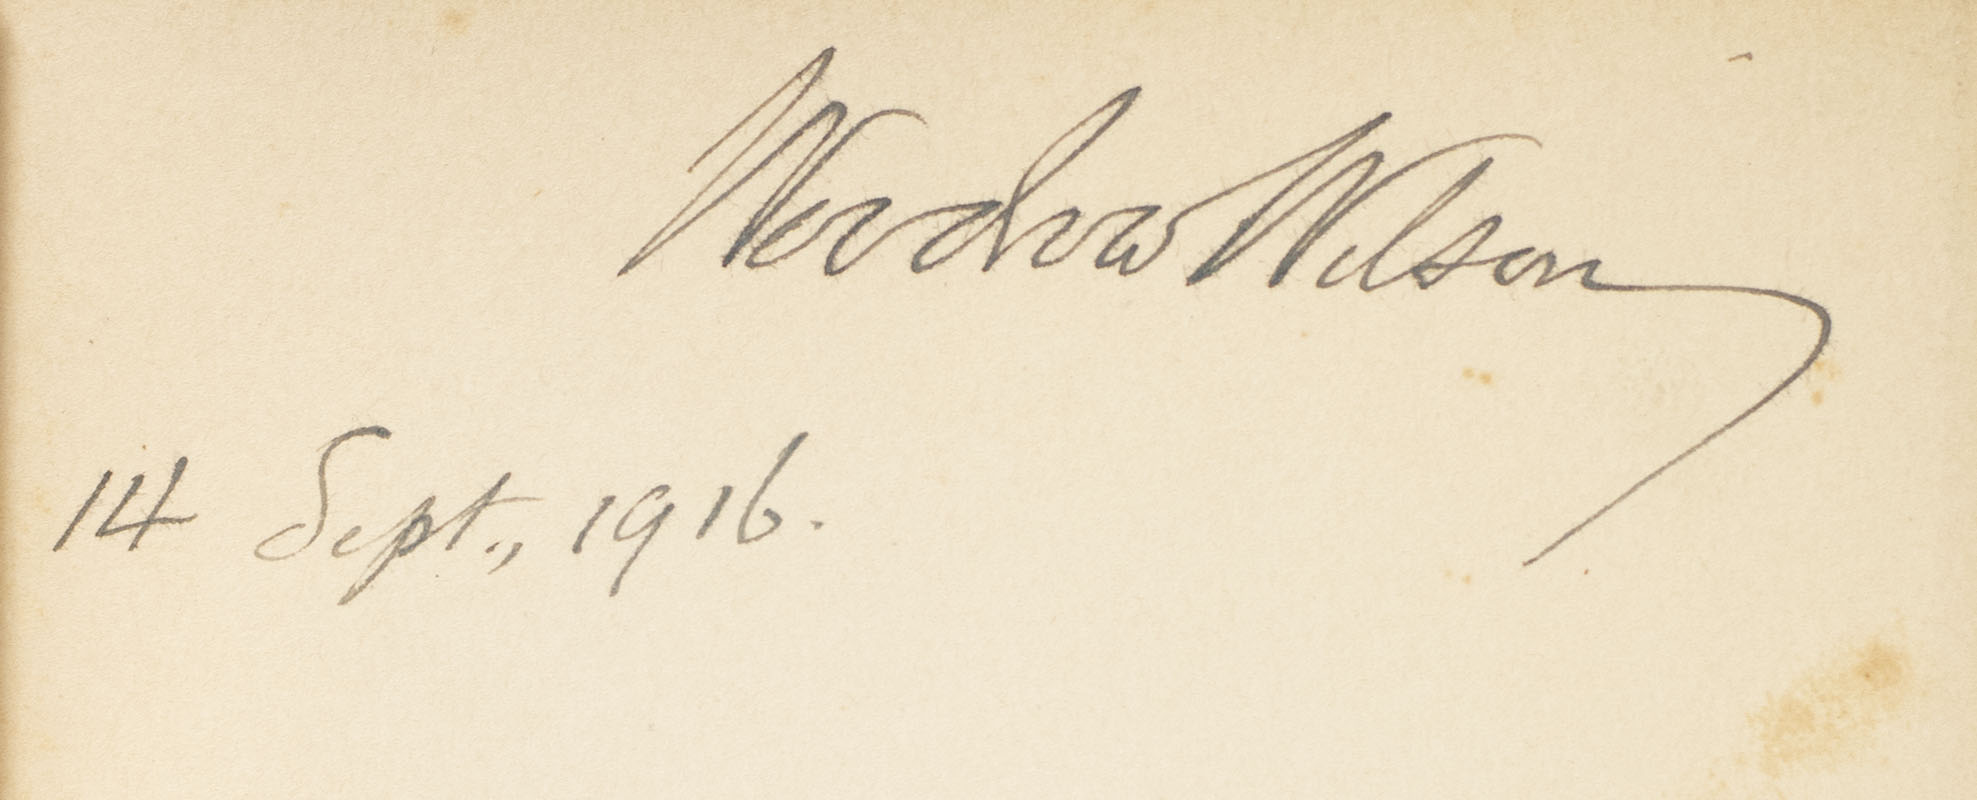 Woodrow Wilson
14 Sept., 1916.